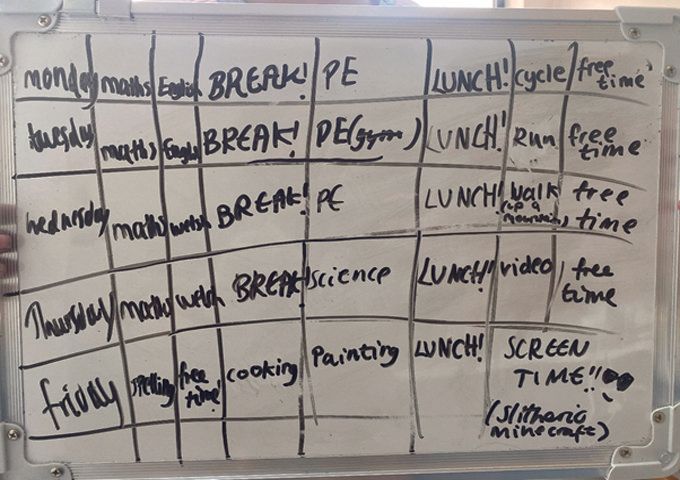 monday maths English BREAK! PE LUNCH! cycle free time
tuesday maths English BREAK! PE (gym) LUNCH! Run free time
wednesday maths welsh BREAK! PE LUNCH! walk (up a mountain) free time
Thursday maths welsh BREAK! science LUNCH! video free time
friday spelling free time! cooking Painting LUNCH! SCREEN TIME!!
(Slitherio minecraft)